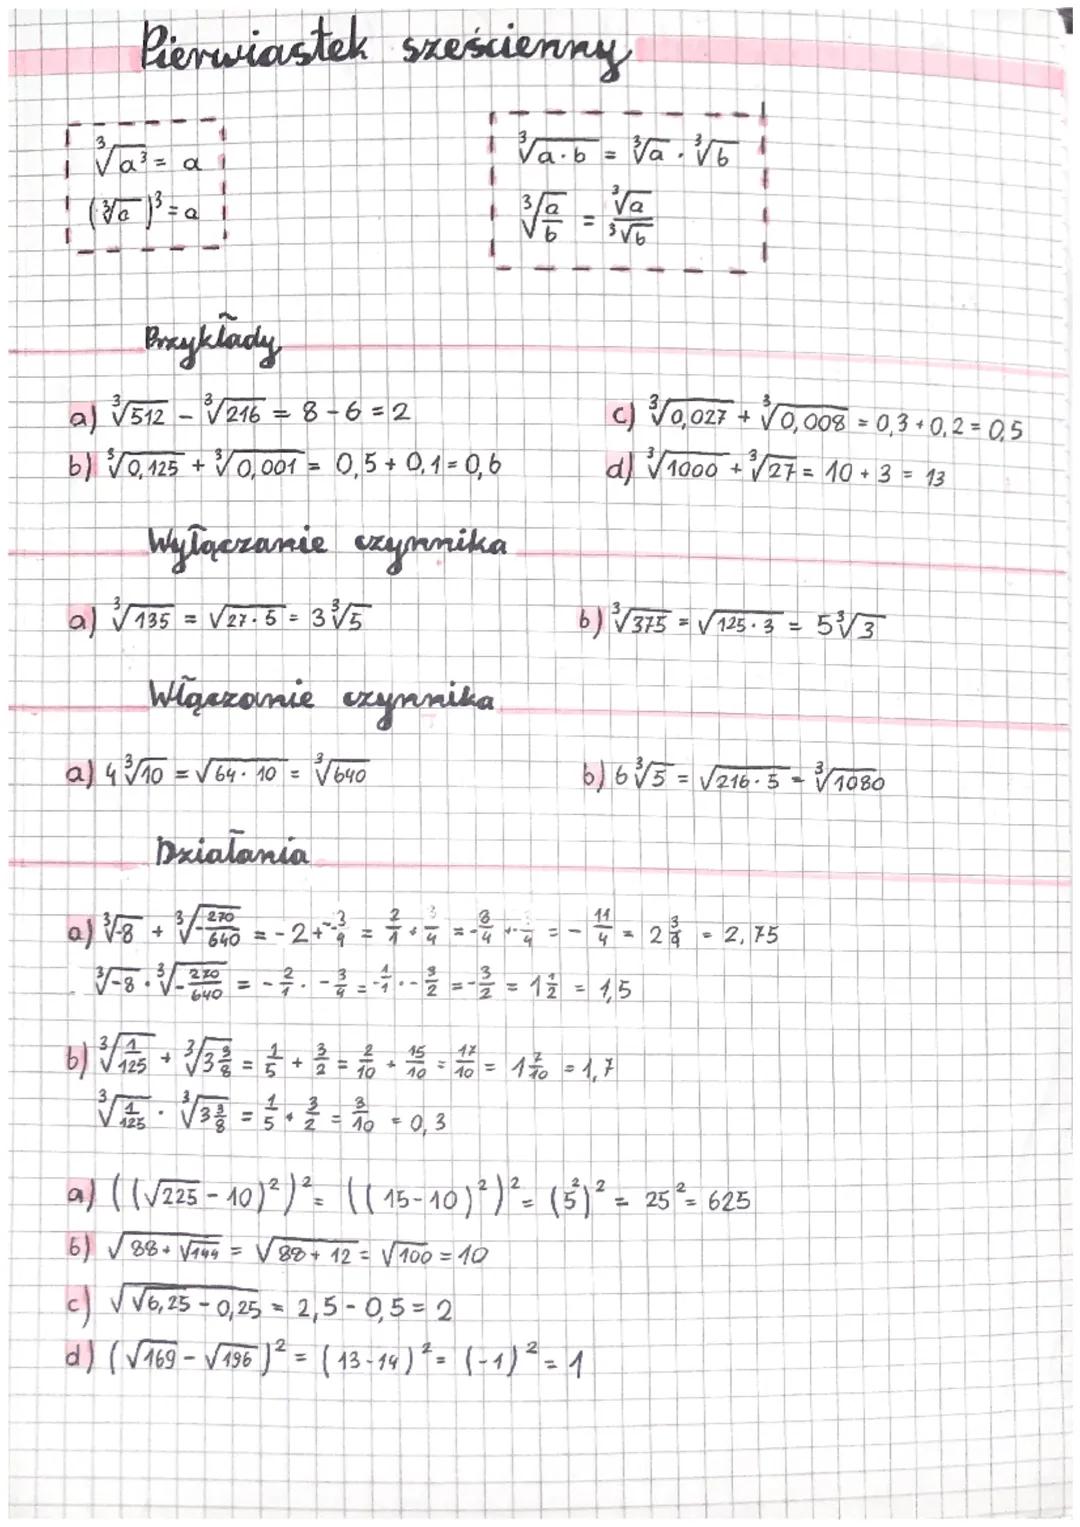 Pierwiastek sześcienny
∛a³ = a
(∛a)³ = a
∛(a·b) = ∛a · ∛b
∛(a/b) = ∛a/∛b
Przykłady
a) ∛512 - ∛216 = 8 - 6 = 2
c) ∛0,027 + ∛0,008 = 0,3 + 0,2 = 0,5
b) ∛0,125 + ∛0,001 = 0,5 + 0,1 = 0,6
d) ∛1000 + ∛27 = 10 + 3 = 13
Wyłączanie czynnika
a) ∛135 = √(27·5) = 3∛5
b) ∛375 = √(125·3) = 5∛3
Włączanie czynnika
a) 4∛10 = √(64·10) = ∛640
b) 6∛5 = √(216·5) = ∛1080
Działania
a) ∛-8 + ∛(-270/640) = -2 + -3/4 = 2/1 + 3/4 = -8/4 + -/4 = -11/4 = 2 3/4 = 2,75
∛-8 · ∛(-270/640) = -2/1 · -3/4 = -1/1 · -3/2 = -3/2 = 1 1/2 = 1,5
b) ∛(1/125) + ∛(3 3/8) = 1/5 + 3/2 = 2/10 + 15/10 = 17/10 = 1 7/10 = 1,7
∛(1/125) · ∛(3 3/8) = 1/5 · 3/2 = 3/10 = 0,3
a) ((√225 - 10)²)² = ((15-10)²)² = (5²)² = 25² = 625
b) √(88 + √144) = √(88 + 12) = √100 = 10
c) √(√6,25 - 0,25) = 2,5 - 0,5 = 2
d) (√169 - √196)² = (13-14)² = (-1)² = 1